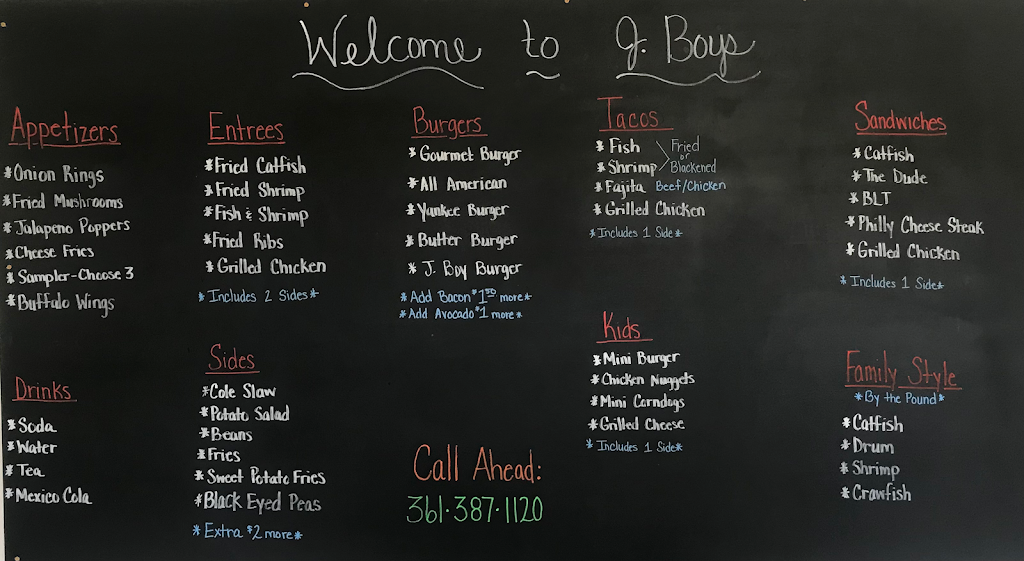 Welcome to J. Boys
Appetizers
*Onion Rings
*Fried Mushrooms
*Jalapeno Poppers
*Cheese Fries
*Sampler-Choose 3
*Buffalo Wings
Drinks
*Soda
*Water
*Tea
*Mexico Cola
Entrees
*Fried Catfish
*Fried Shrimp
*Fish & Shrimp
*Fried Ribs
*Grilled Chicken
*Includes 2 Sides*
Sides
*Cole Slaw
*Potato Salad
*Beans
*Fries
*Sweet Potato Fries
*Black Eyed Peas
*Extra $2 more*
Burgers
*Gourmet Burger
*All American
*Yankee Burger
*Butter Burger
*J. Boy Burger
*Add Bacon $1.50 more*
*Add Avocado $1 more*
Call Ahead:
361·387·1120
Tacos
*Fish
*Shrimp
Fried
or
Blackened
*Fajita Beef/Chicken
*Grilled Chicken
*Includes 1 Side*
Kids
*Mini Burger
*Chicken Nuggets
*Mini Corndogs
*Grilled Cheese
*Includes 1 Side*
Sandwiches
*Catfish
*The Dude
*BLT
*Philly Cheese Steak
*Grilled Chicken
*Includes 1 Side*
Family Style
*By the Pound*
*Catfish
*Drum
*Shrimp
*Crawfish